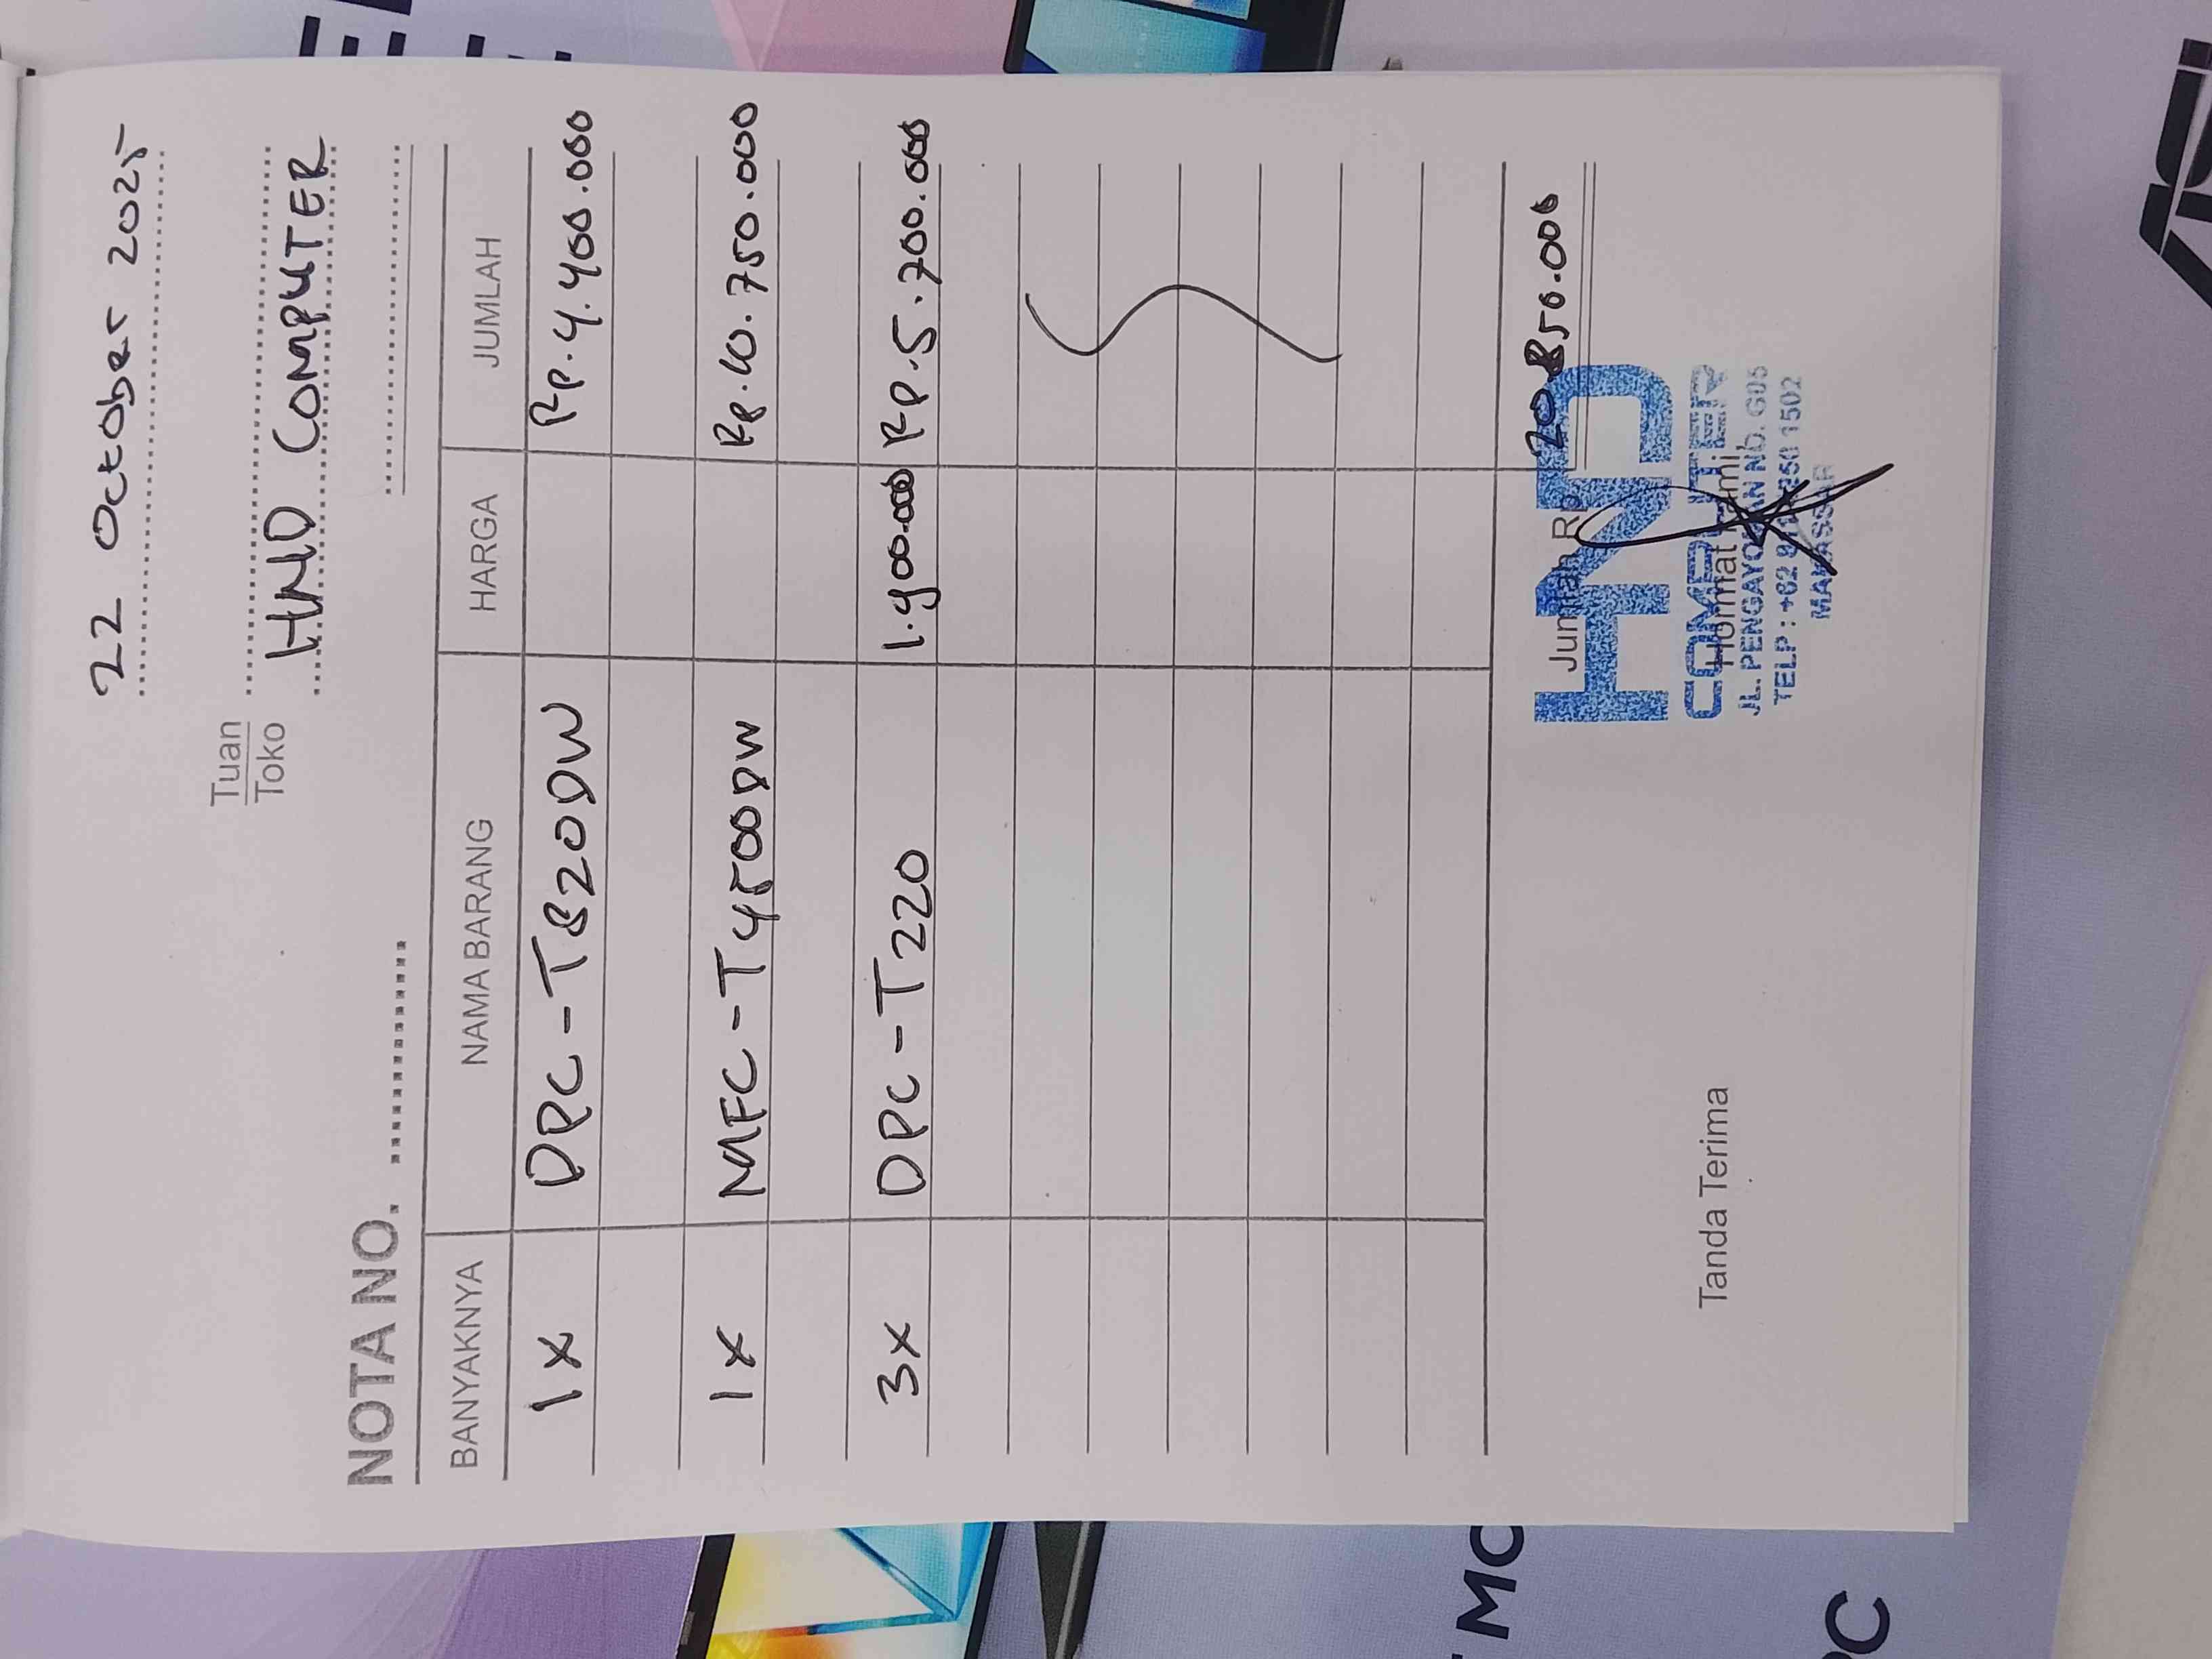 22 October 2025
Tuan
Toko
HND COMPUTER
NOTA NO.
BANYAKNYA NAMA BARANG HARGA JUMLAH
1x DPC-T820DW Rp.4.400.000
1x MFC-T4500DW Rp.10.750.000
3x DPC-T220 1.900.000 Rp.5.700.000
Jumlah Rp 20.850.000
Tanda Terima Hormat kami
HND
COMPUTER
JL. PENGAYOMAN No. G05
TELP : +62 1502
MAKASSAR
MO
PC